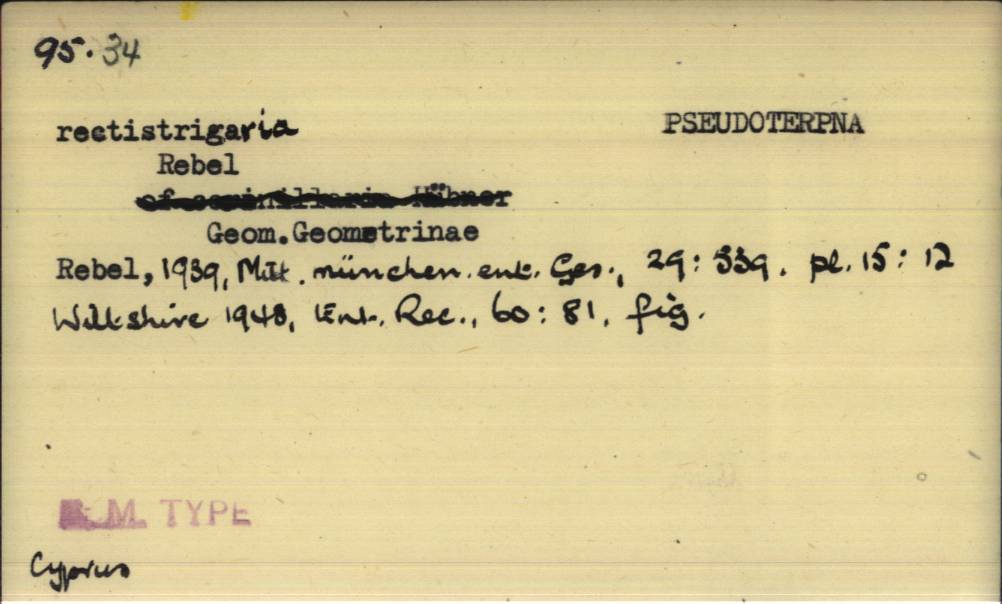 95.34
rectistrigaria PSEUDOTERPNA
Rebel
Hübner
Geom.Geometrinae
Rebel, 1939, Mitt. münchen. ent. Ges., 29: 539. pl. 15: 12
Wiltshire 1948, Ent. Rec., 60: 81. fig.
M. TYPE
Cyprus